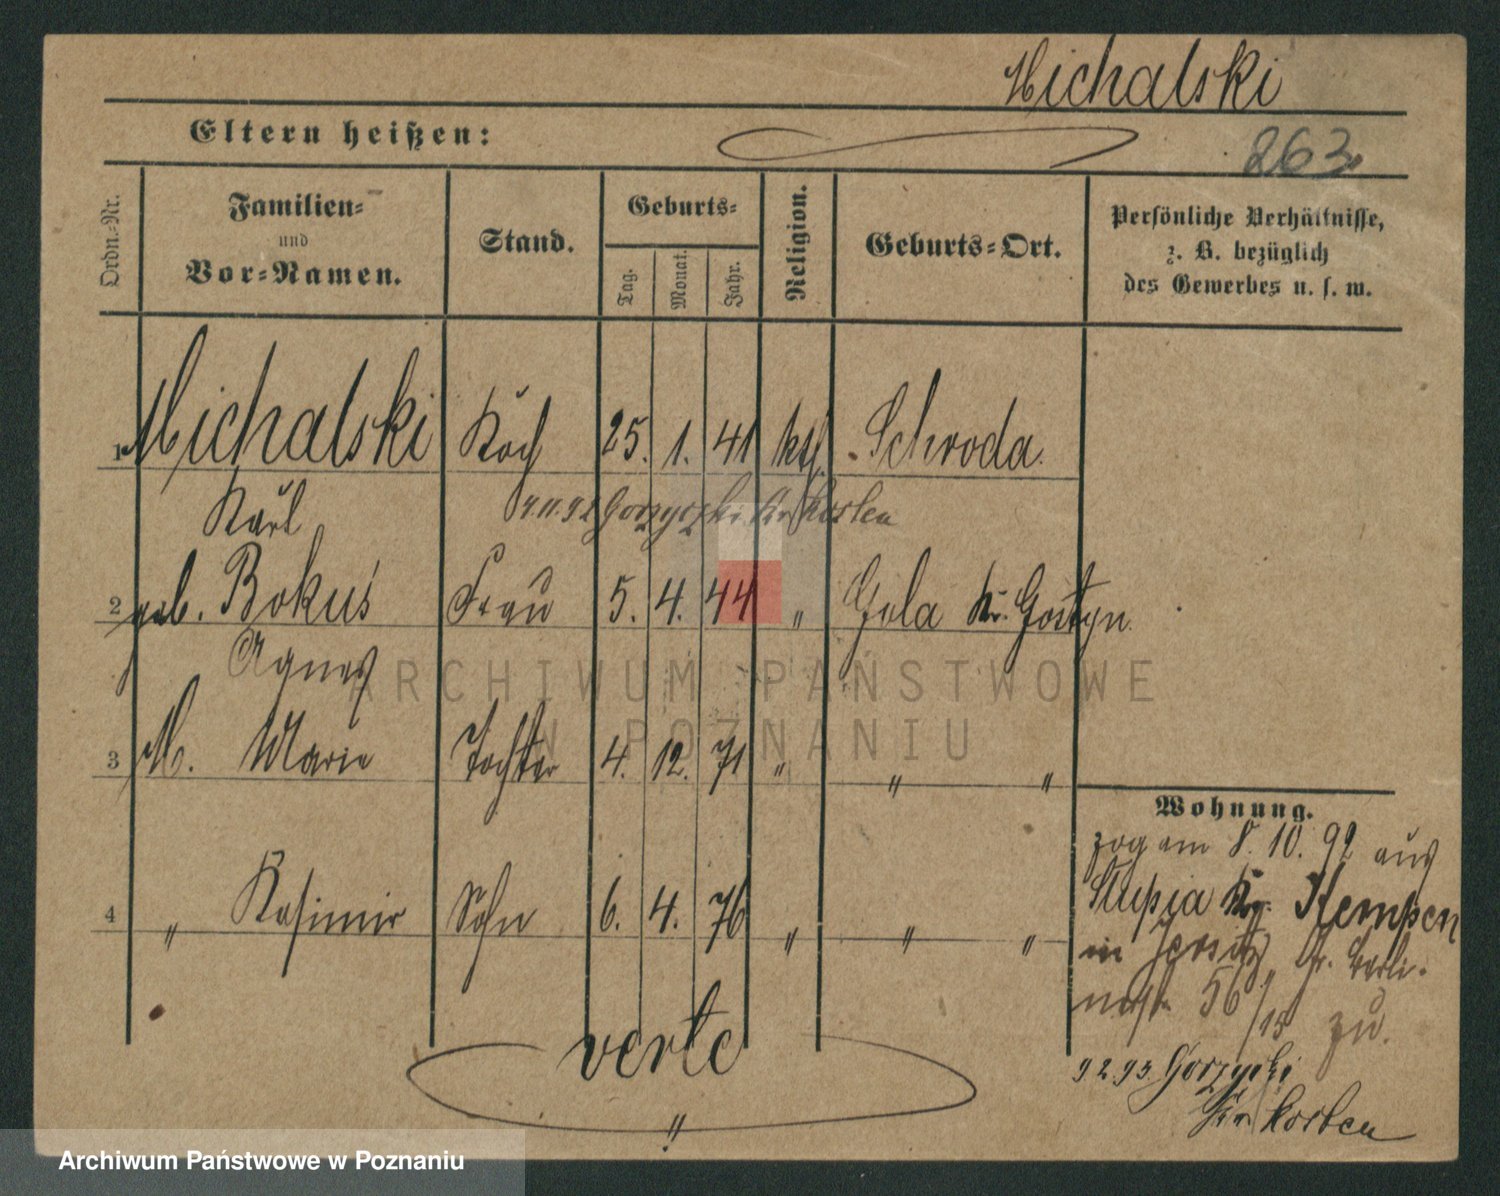 Michalski
Eltern heißen:
263.
Ordn.-Nr.
Familien-
und
Vor-Namen.
Stand.
Geburts-
Tag.
Monat.
Jahr.
Religion.
Geburts-Ort.
Persönliche Verhältnisse,
z. B. bezüglich
des Gewerbes u. s. w.
1 Michalski Koch 25. 1. 41 kth. Schroda.
Karl 4.11.92 Gorzyczki Kr. Kosten
2 geb. Bokuś Frau 5. 4. 44 " Gola Kr. Gostyn.
Agnes
3 M. Marie Tochter 4. 12. 71 " " "
4 " Kasimir Sohn 6. 4. 76 " " "
Wohnung.
zog am 8. 10. 92 aus
Slupia Kr. Kempen
in Jersitz, Gr. Berli-
nerstr. 56/15 zu.
9 2 93. Gorzyczki
Kr. Kosten
verte
"
ARCHIWUM PAŃSTWOWE
W POZNANIU
Archiwum Państwowe w Poznaniu